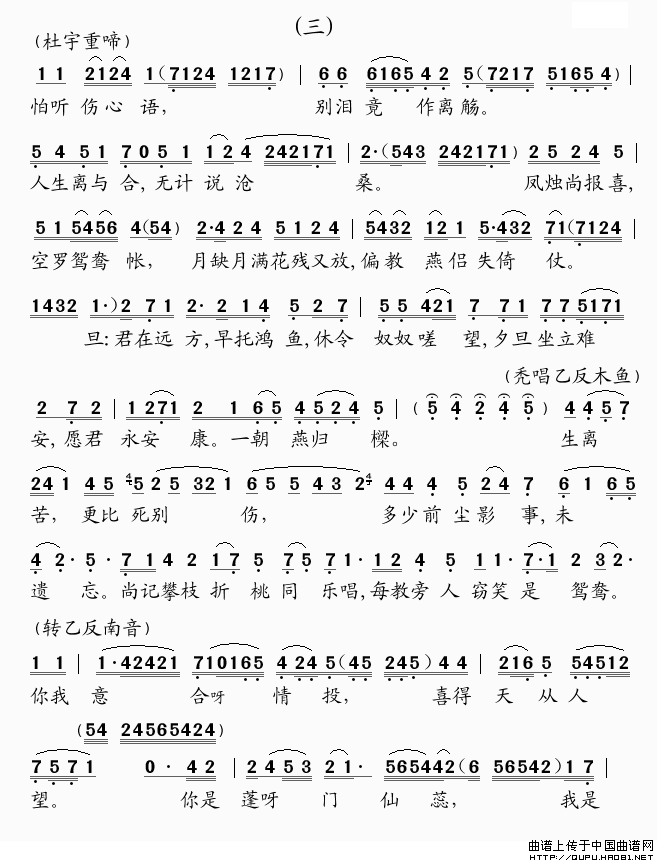 (三)
(杜宇重啼)
1 1 2124 1(7124 1217) | 6 6 6165 4 2 5(7217 5165 4) |
怕听 伤心 语, 别泪 竟 作离 觞。
5 4 5 1 7 0 5 1 1 2 4 242171 | 2·(543 242171) 2 5 2 4 5
人生离与 合,无计 说 沧 桑。 凤烛尚报 喜,
5 1 5456 4(54) 2·4 2 4 5 1 2 4 | 5432 1 2 1 5·432 71(7124
空罗鸳鸯 帐, 月缺月满花残又放,偏教 燕侣 失倚 仗。
1432 1·) 2 7 1 2· 2 1 4 5· 5 1 | 5 5 421 7 7 1 7 7 5171
旦:君在远 方,早托鸿 鱼,休令 奴奴嗟 望,夕旦坐立难
(秃唱乙反木鱼)
2 7 2 | 1271 2 1 6 5 4524 5 | (5 4 2 4 5) 4 4 5 7
安,愿君 永安 康。一朝 燕归 樑。 生离
24 1 4 5 4 5 2 5 3 2 1 6 5 5 4 3 2 4 4 4 5 2 4 7 6 1 6 5
苦, 更比 死别 伤, 多少前 尘影 事,未
4 2· 5· 7 1 4 2 1 7 5 7 5 7 1· 1 2 4 5 1 1· 7·1 2 3 2·
遗 忘。尚记攀枝 折 桃 同 乐唱,每教旁 人 窃笑 是 鸳鸯。
(转乙反南音)
1 1 | 1·42421 710165 4 24 5(45 245) 4 4 | 216 5 54512
你我 意 合呀 情 投, 喜得 天 从 人
(54 24565424)
7 5 7 1 0· 4 2 | 2 4 5 3 2 1· 565442(6 56542)1 7 |
望。 你是 蓬呀 门 仙 蕊, 我是
曲谱上传于中国曲谱网
http://QUPU.HAO81.NET